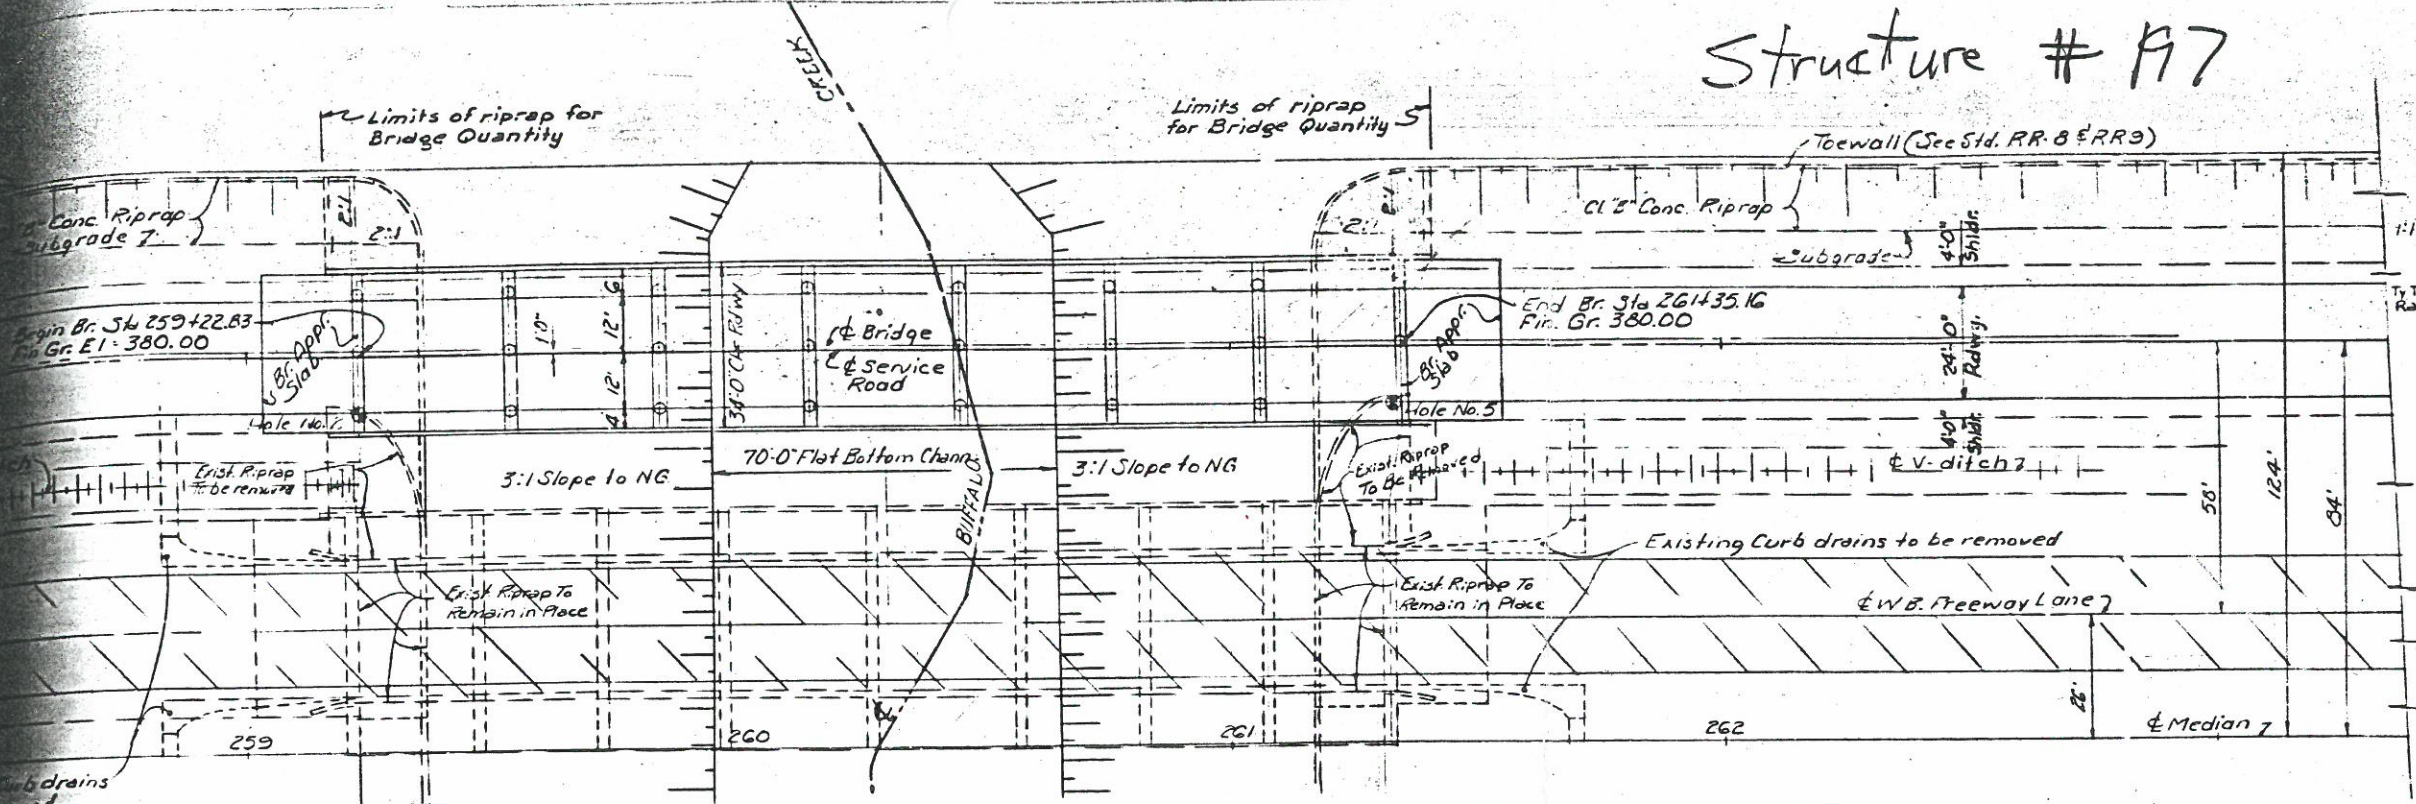 Structure # 197
CREEK
Limits of riprap for
Bridge Quantity
Limits of riprap
for Bridge Quantity
Toewall (See Std. RR-8 & RR9)
Conc. Riprap
Subgrade
2:1
2:1
2:1
2:1
Cl."B" Conc. Riprap
Subgrade
4'-0"
Shldr.
Begin Br. Sta 259+22.83
Fin Gr. El = 380.00
Br. Appr.
Slab
10"
6
12'
12'
4
34'-0" Clr Rdwy
℄ Bridge
℄ Service
Road
End Br. Sta 261+35.16
Fin. Gr. 380.00
Br. Appr.
Slab
24'-0"
Rdwy.
Hole No.
Hole No. 5
4'-0"
Shldr.
Exist. Riprap
To be removed
3:1 Slope to NG
70'-0" Flat Bottom Chann.
3:1 Slope to NG
Exist. Riprap
To Be Removed
℄ V-ditch
58'
124'
84'
BUFFALO
Existing Curb drains to be removed
Exist. Riprap To
Remain in Place
Exist. Riprap To
Remain in Place
℄ W.B. Freeway Lane
26'
℄
259
260
261
262
℄ Median
drains